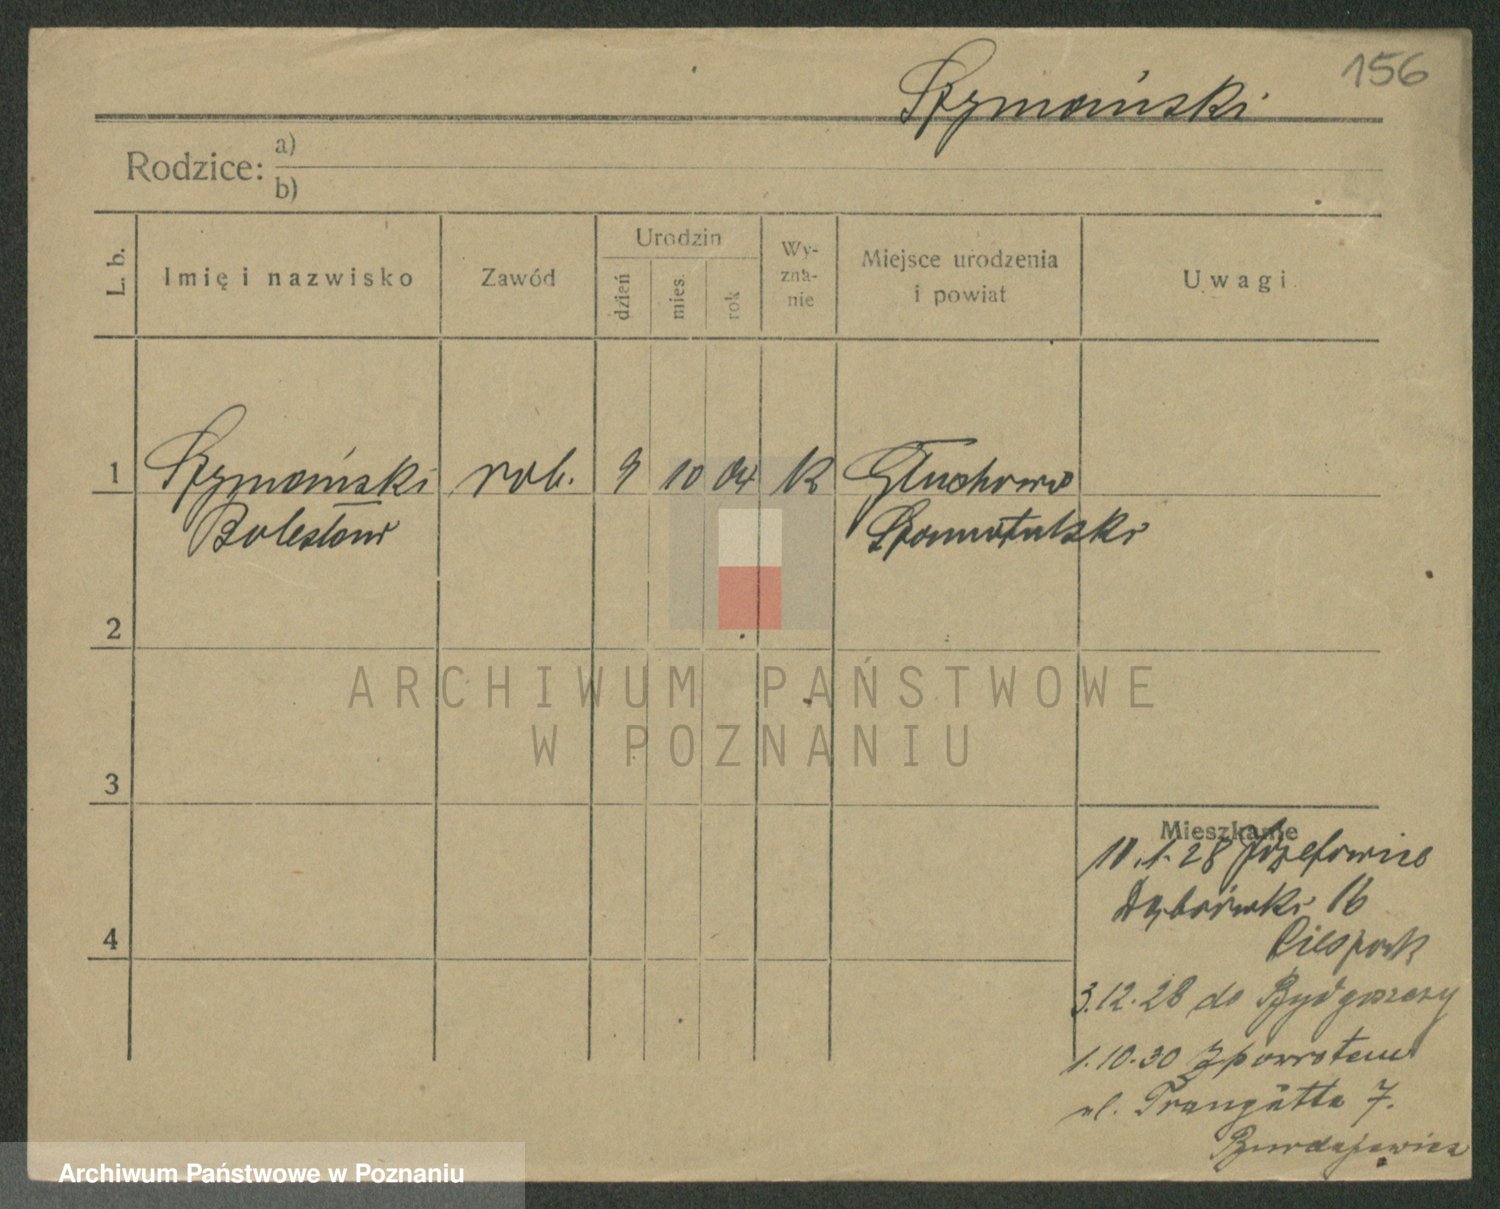 156
Szymański
Rodzice: a)
b)
L. b.
Imię i nazwisko
Zawód
Urodzin
dzień
mies.
rok
Wy-
zna-
nie
Miejsce urodzenia
i powiat
Uwagi
1 Szymański rob. 9 10 04 k Głuchowo
Bolesław Szamotulski
2
ARCHIWUM PAŃSTWOWE
W POZNANIU
3
Mieszkanie
10.1.28
Dąbrówki 16
4
3.12.28 do Bydgoszczy
1.10.30 z powrotem
ul. Traugutta 7.
Archiwum Państwowe w Poznaniu